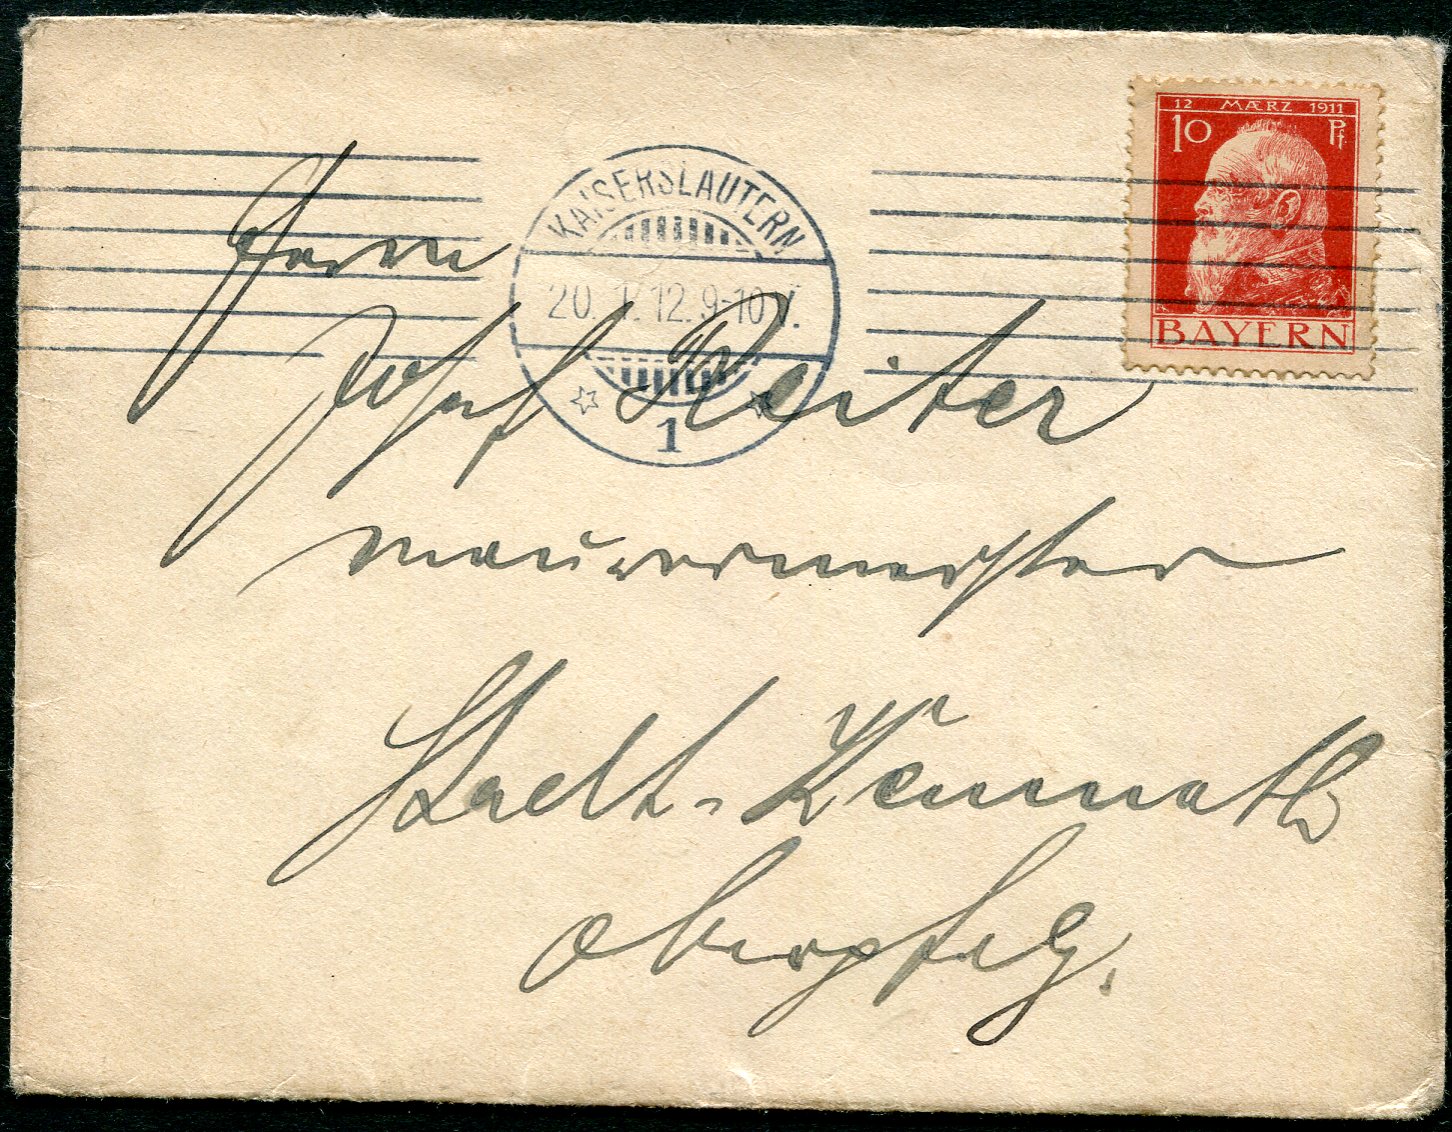 12 MÆRZ 1911
10 Pf
BAYERN
KAISERSLAUTERN
20. 1. 12. 9-10 V.
1
Herrn
Josef Reiter
Maurermeister
Stadt-Kemnath
Oberpfalz.